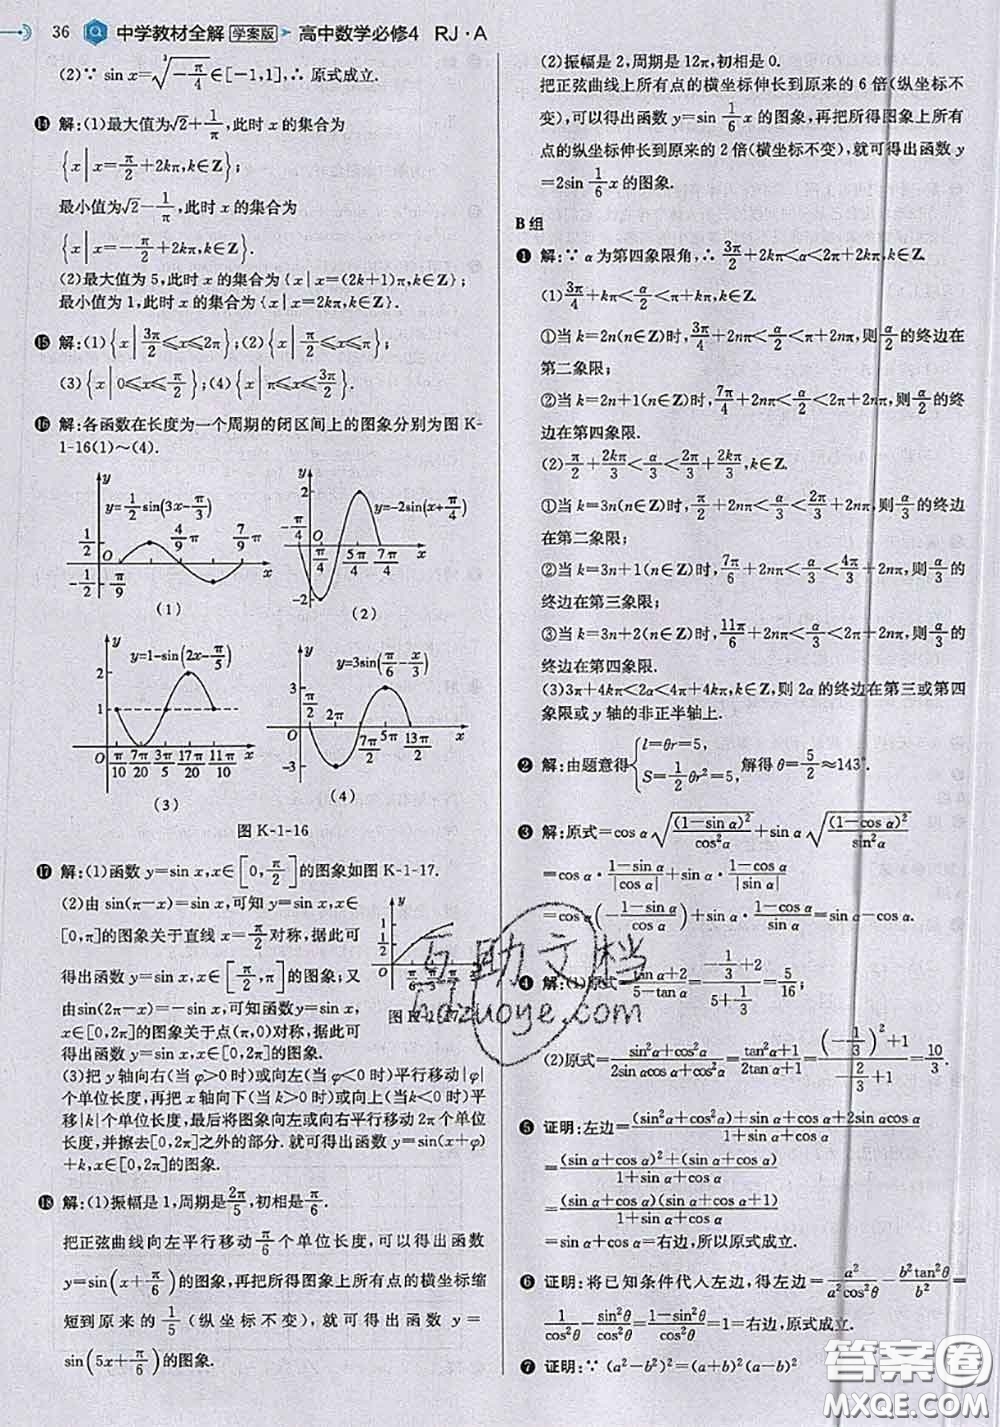 36 中学教材全解 学案版 高中数学必修4 RJ·A
(2)∵ sin x=∛(-π/4)∈[-1,1],∴ 原式成立.
⑭ 解:(1)最大值为√2+1/π,此时 x 的集合为
{x|x=π/2+2kπ,k∈Z};
最小值为√2-1/π,此时 x 的集合为
{x|x=-π/2+2kπ,k∈Z}.
(2)最大值为 5,此时 x 的集合为{x|x=(2k+1)π,k∈Z};
最小值为 1,此时 x 的集合为{x|x=2kπ,k∈Z}.
⑮ 解:(1){x|3π/2≤x≤2π};(2){x|π/2≤x≤π};
(3){x|0≤x≤π/2};(4){x|π≤x≤3π/2}.
⑯ 解:各函数在长度为一个周期的闭区间上的图象分别为图 K-
1-16(1)~(4).
y y=1/2 sin(3x-π/3) 1/2 -1/2 O π/9 4/9 π 7/9 π x
(1)
y y=-2sin(x+π/4) 2 -2 O π/4 5π/4 7π/4 x
(2)
y y=1-sin(2x-π/5) 2 1 O π/10 7π/20 3π/5 17π/20 11π/10 x
(3)
y y=3sin(π/6-x/3) 3 -3 O π/2 2π 7π/2 5π 13π/2 x
(4)
图 K-1-16
⑰ 解:(1)函数 y=sin x,x∈[0,π/2]的图象如图 K-1-17.
(2)由 sin(π-x)=sin x,可知函数 y=sin x,x∈
[0,π]的图象关于直线 x=π/2对称,据此可
得出函数 y=sin x,x∈[π/2,π]的图象;又
由sin(2π-x)=-sin x,可知函数 y=sin x,
x∈[0,2π]的图象关于点(π,0)对称,据此可
得出函数 y=sin x,x∈[0,2π]的图象.
(3)把 y 轴向右(当 φ>0 时)或向左(当 φ<0 时)平行移动|φ|
个单位长度,再把 x 轴向下(当 k>0 时)或向上(当 k<0 时)平行移
动|k|个单位长度,最后将图象向左或向右平行移动 2π 个单位
长度,并擦去[0,2π]之外的部分. 就可得出函数 y=sin(x+φ)
+k,x∈[0,2π]的图象.
⑱ 解:(1)振幅是 1,周期是2π/5,初相是π/6.
把正弦曲线向左平行移动π/6个单位长度,可以得出函数
y=sin(x+π/6)的图象,再把所得图象上所有点的横坐标缩
短到原来的1/5(纵坐标不变),就可得出函数 y=
sin(5x+π/6)的图象.
(2)振幅是 2,周期是 12π,初相是 0.
把正弦曲线上所有点的横坐标伸长到原来的 6 倍(纵坐标不
变),可以得出函数 y=sin 1/6 x 的图象,再把所得图象上所有
点的纵坐标伸长到原来的 2 倍(横坐标不变),就可得出函数 y
=2sin 1/6 x 的图象.
B 组
❶ 解:∵ α 为第四象限角,∴ 3π/2+2kπ<α<2π+2kπ,k∈Z.
(1)3π/4+kπ<α/2<π+kπ,k∈Z.
①当 k=2n(n∈Z)时,3π/4+2nπ<α/2<π+2nπ,则α/2的终边在
第二象限;
②当 k=2n+1(n∈Z)时,7π/4+2nπ<α/2<2π+2nπ,则α/2的终
边在第四象限.
(2)π/2+2kπ/3<α/3<2π/3+2kπ/3,k∈Z.
①当 k=3n(n∈Z)时,π/2+2nπ<α/3<2π/3+2nπ,则α/3的终边
在第二象限;
②当 k=3n+1(n∈Z)时,7π/6+2nπ<α/3<4π/3+2nπ,则α/3的
终边在第三象限;
③当 k=3n+2(n∈Z)时,11π/6+2nπ<α/3<2π+2nπ,则α/3的
终边在第四象限.
(3)3π+4kπ<2α<4π+4kπ,k∈Z,则 2α 的终边在第三或第四
象限或 y 轴的非正半轴上.
❷ 解:由题意得{l=θr=5, S=1/2 θr²=5, 解得 θ=5/2≈143°.
❸ 解:原式=cos α√((1-sin α)²/cos²α)+sin α√((1-cos α)²/sin²α)
=cos α·(1-sin α)/|cos α|+sin α·(1-cos α)/|sin α|
=cos α(-(1-sin α)/cos α)+sin α·(1-cos α)/sin α=sin α-cos α.
❹ 解:(1)原式=(tan α+2)/(5-tan α)=(-1/3+2)/(5+1/3)=5/16;
(2)原式=(sin²α+cos²α)/(2sin αcos α+cos²α)=(tan²α+1)/(2tan α+1)=((-1/3)²+1)/(-2/3+1)=10/3.
❺ 证明:左边=((sin²α+cos²α)+sin α+cos α+2sin αcos α)/(1+sin α+cos α)
=((sin α+cos α)²+(sin α+cos α))/(1+sin α+cos α)
=((sin α+cos α)(sin α+cos α+1))/(1+sin α+cos α)
=sin α+cos α=右边,所以原式成立.
❻ 证明:将已知条件代入左边,得左边=a²/(a²cos²θ)-b²tan²θ/b²=
1/cos²θ-sin²θ/cos²θ=(1-sin²θ)/cos²θ=1=右边,故原式成立.
❼ 证明:∵ (a²-b²)²=(a+b)²(a-b)²
互助文档
hdzuoye.com
答案圈
MXQE.COM